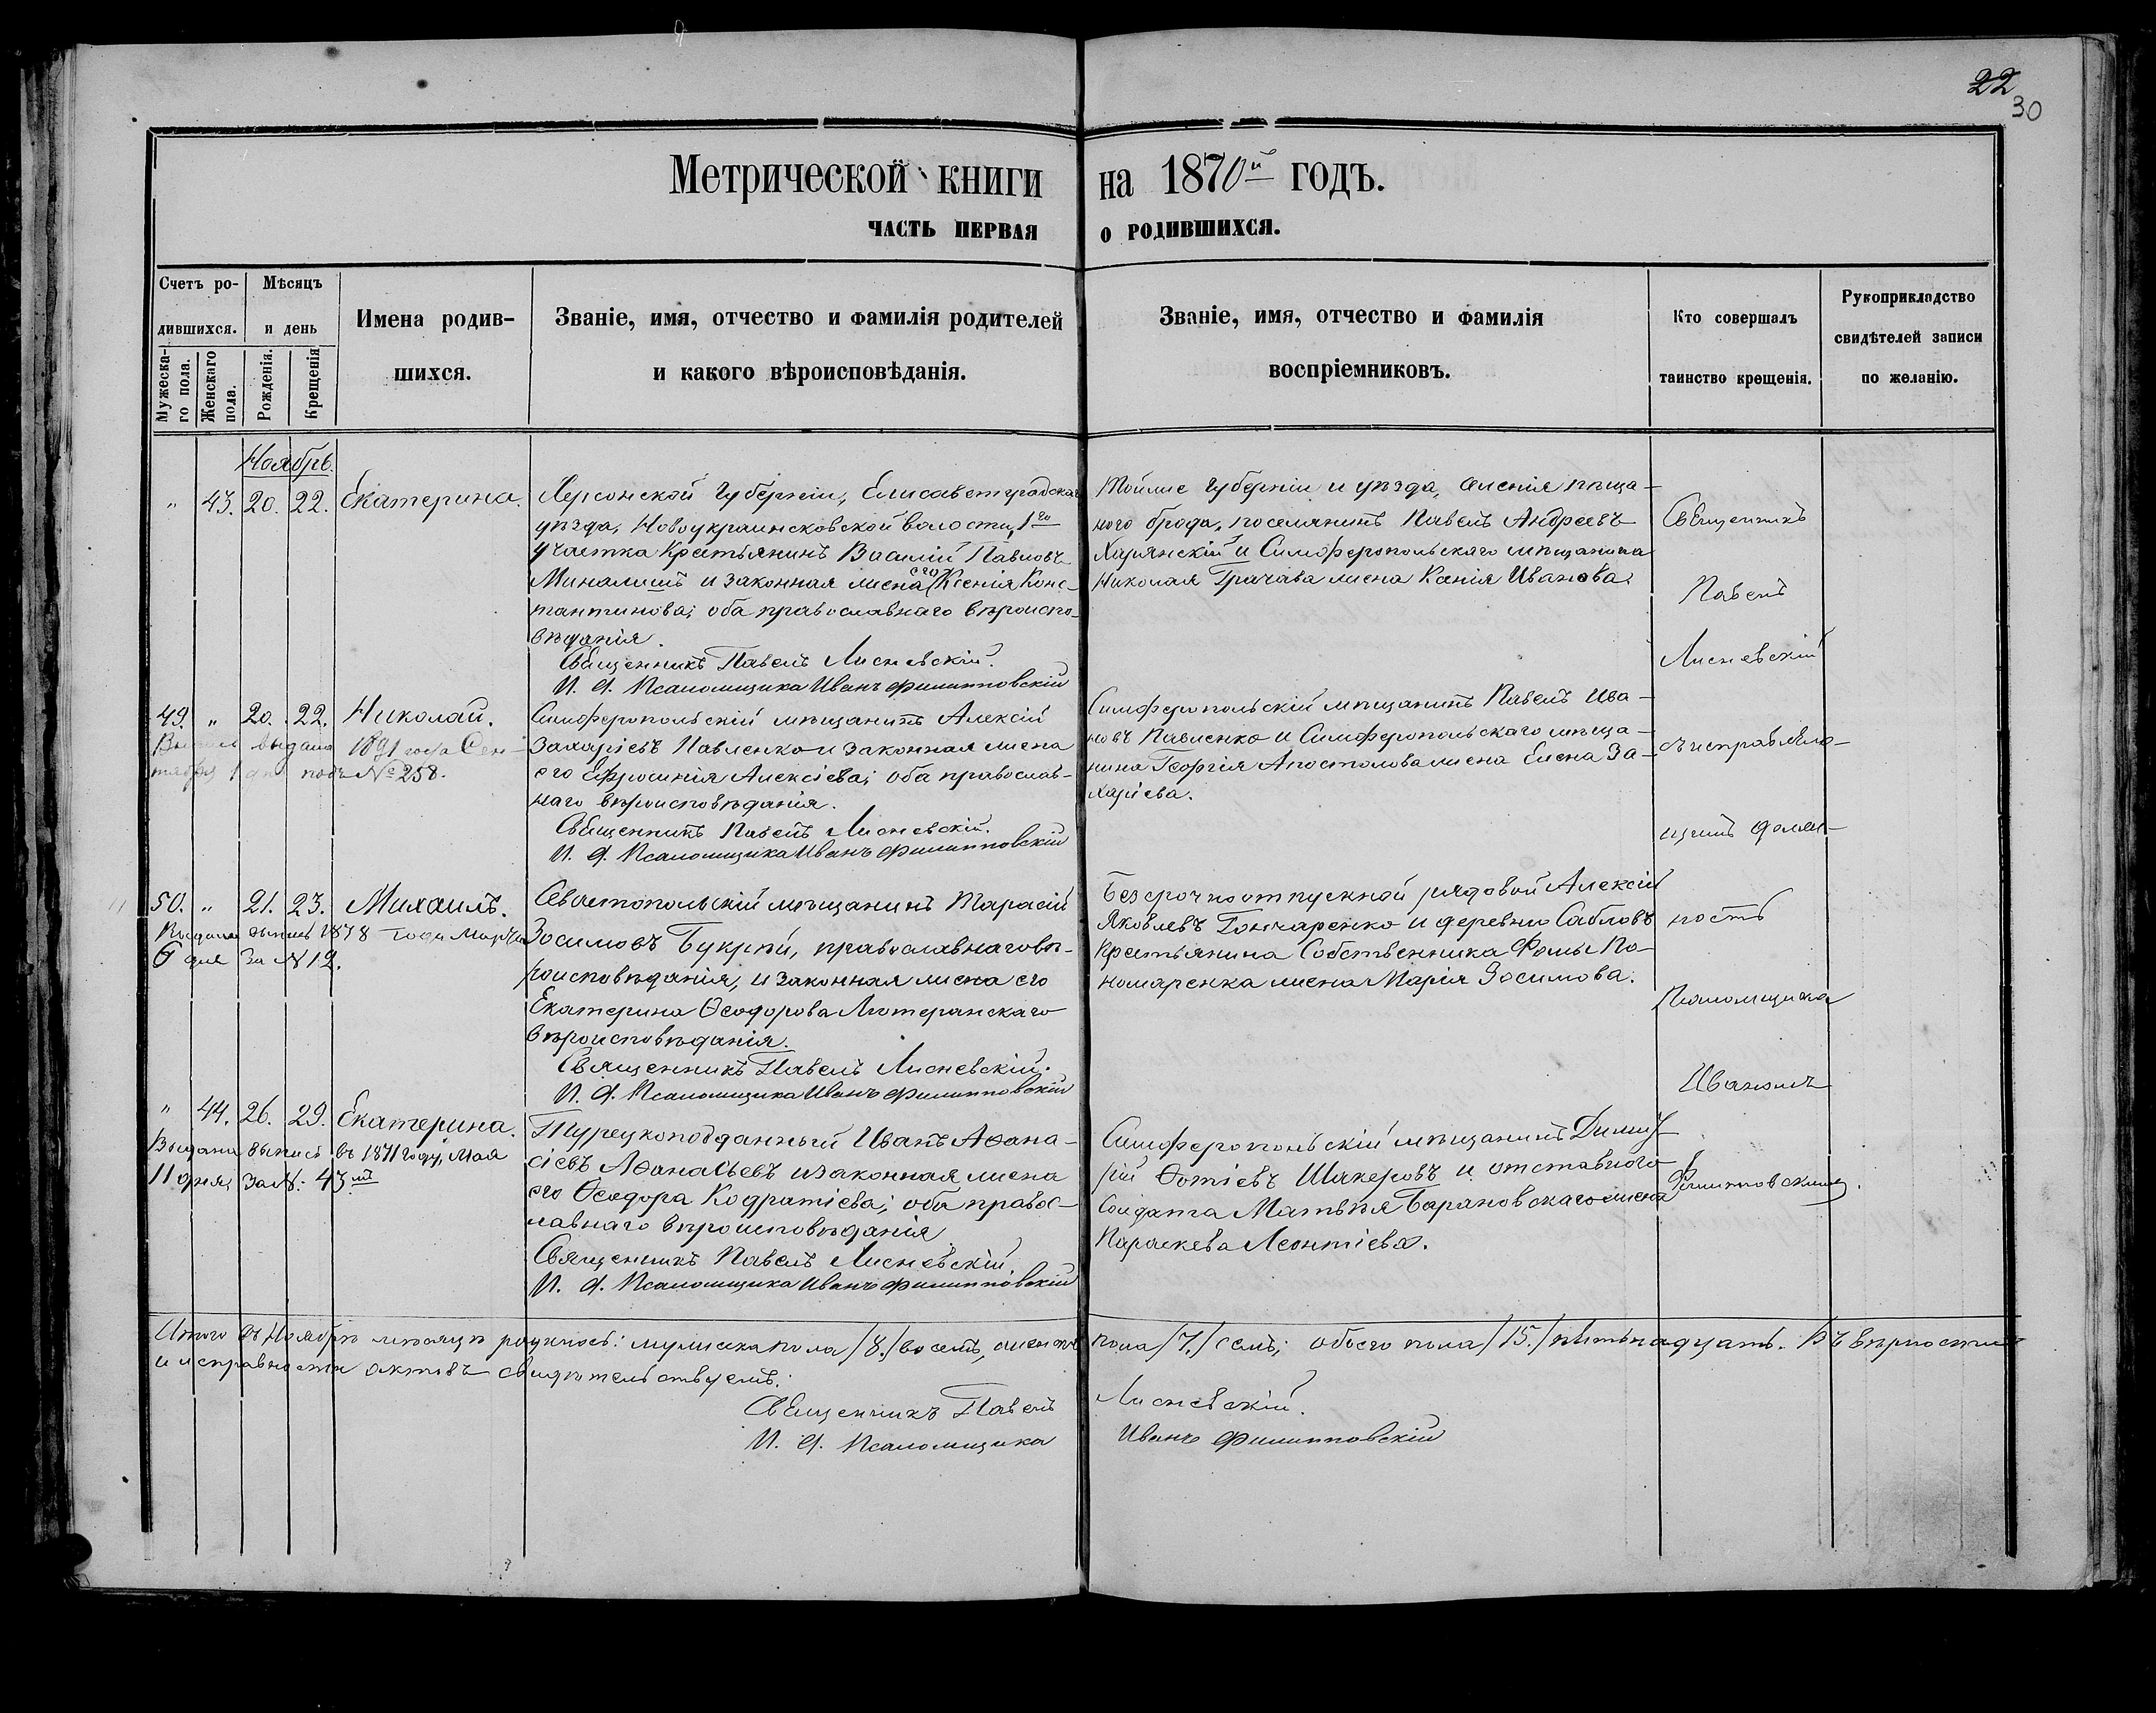 22
30
Метрической книги на 1870й годъ.
ЧАСТЬ ПЕРВАЯ О РОДИВШИХСЯ.
Счетъ родившихся.
Мужескаго пола.
Женскаго пола.
Мѣсяцъ и день
Рожденія.
Крещенія
Имена родив-
шихся.
Званіе, имя, отчество и фамилія родителей
и какого вѣроисповѣданія.
Званіе, имя, отчество и фамилія
воспріемниковъ.
Кто совершалъ
таинство крещенія.
Рукоприкладство
свидѣтелей записи
по желанію.
Ноябрь.
" 43. 20. 22. Екатерина.
Херсонской Губерніи, Елисаветградскаго
уѣзда, Новоукраинсковской волости, 1го
участка Крестьянинъ Василій Павловъ
и законная жена его Ксенія Конс-
тантинова; оба православнаго вѣроиспо-
вѣданія.
Священникъ Павелъ Лисневскій.
И. д. Псаломщика Иванъ Филипповскій
Тойже Губерніи и уѣзда, селенія пѣща-
ного брода, поселянинъ Павелъ Андреевъ
Харянскій и Симферопольскаго мѣщанина
Николая Грачава жена Ксенія Иванова.
49. " 20. 22. Николай.
Выпись выдана 1891 года Сен-
тября 1 дня подъ № 258.
Симферопольскій мѣщанинъ Алексій
Захаріевъ Павленко и законная жена
его Ефросинія Алексіева; оба православ-
наго вѣроисповѣданія.
Священникъ Павелъ Лисневскій.
И. д. Псаломщика Иванъ Филипповскій
Симферопольскій мѣщанинъ Павелъ Ива-
новъ Павленко и Симферопольскаго мѣща-
нина Георгія Апостолова жена Елена За-
харіева.
50. " 21. 23. Михаилъ.
Выдана выпись 1878 года Марта
6 дня за № 12.
Севастопольскій мѣщанинъ Тарасій
Зосимовъ Букрѣй, православнаго вѣ-
роисповѣданія, и законная жена его
Екатерина Ѳеодорова Лютеранскаго
вѣроисповѣданія.
Священникъ Павелъ Лисневскій.
И. д. Псаломщика Иванъ Филипповскій
Безсрочноотпускной рядовой Алексій
Яковлевъ Гончаренко и деревни Сабловъ
Крестьянина Собственника Фомы По-
номаренка жена Марія Зосимова.
" 44. 26. 29. Екатерина.
Выдана выпись въ 1871 году, Мая
11 дня, за №: 43мъ
Турецкоподданный Иванъ Аѳана-
сіевъ Аѳанасьевъ и законная жена
его Ѳеодора Кодратіева; оба правос-
лавнаго вѣроисповѣданія
Священникъ Павелъ Лисневскій.
И. д. Псаломщика Иванъ Филипповскій
Симферопольскій мѣщанинъ Димит-
рій Ѳотіевъ Шакеровъ и отставного
Солдата Матвѣя Барановскаго жена
Параскева Леонтіева.
Священникъ
Павелъ
Лисневскій
съ исправляю-
щимъ должн-
ность
Псаломщика
Иваномъ
Филипповскимъ.
Итого въ Ноябрѣ мѣсяцѣ родилось: мужеска пола /8./ восемь, женска пола /7./ семь; обоего пола /15./ пятьнадцать. Въ вѣрности
и исправности актовъ свидѣтельствуемъ:
Священникъ Павелъ Лисневскій.
И. д. Псаломщика Иванъ Филипповскій